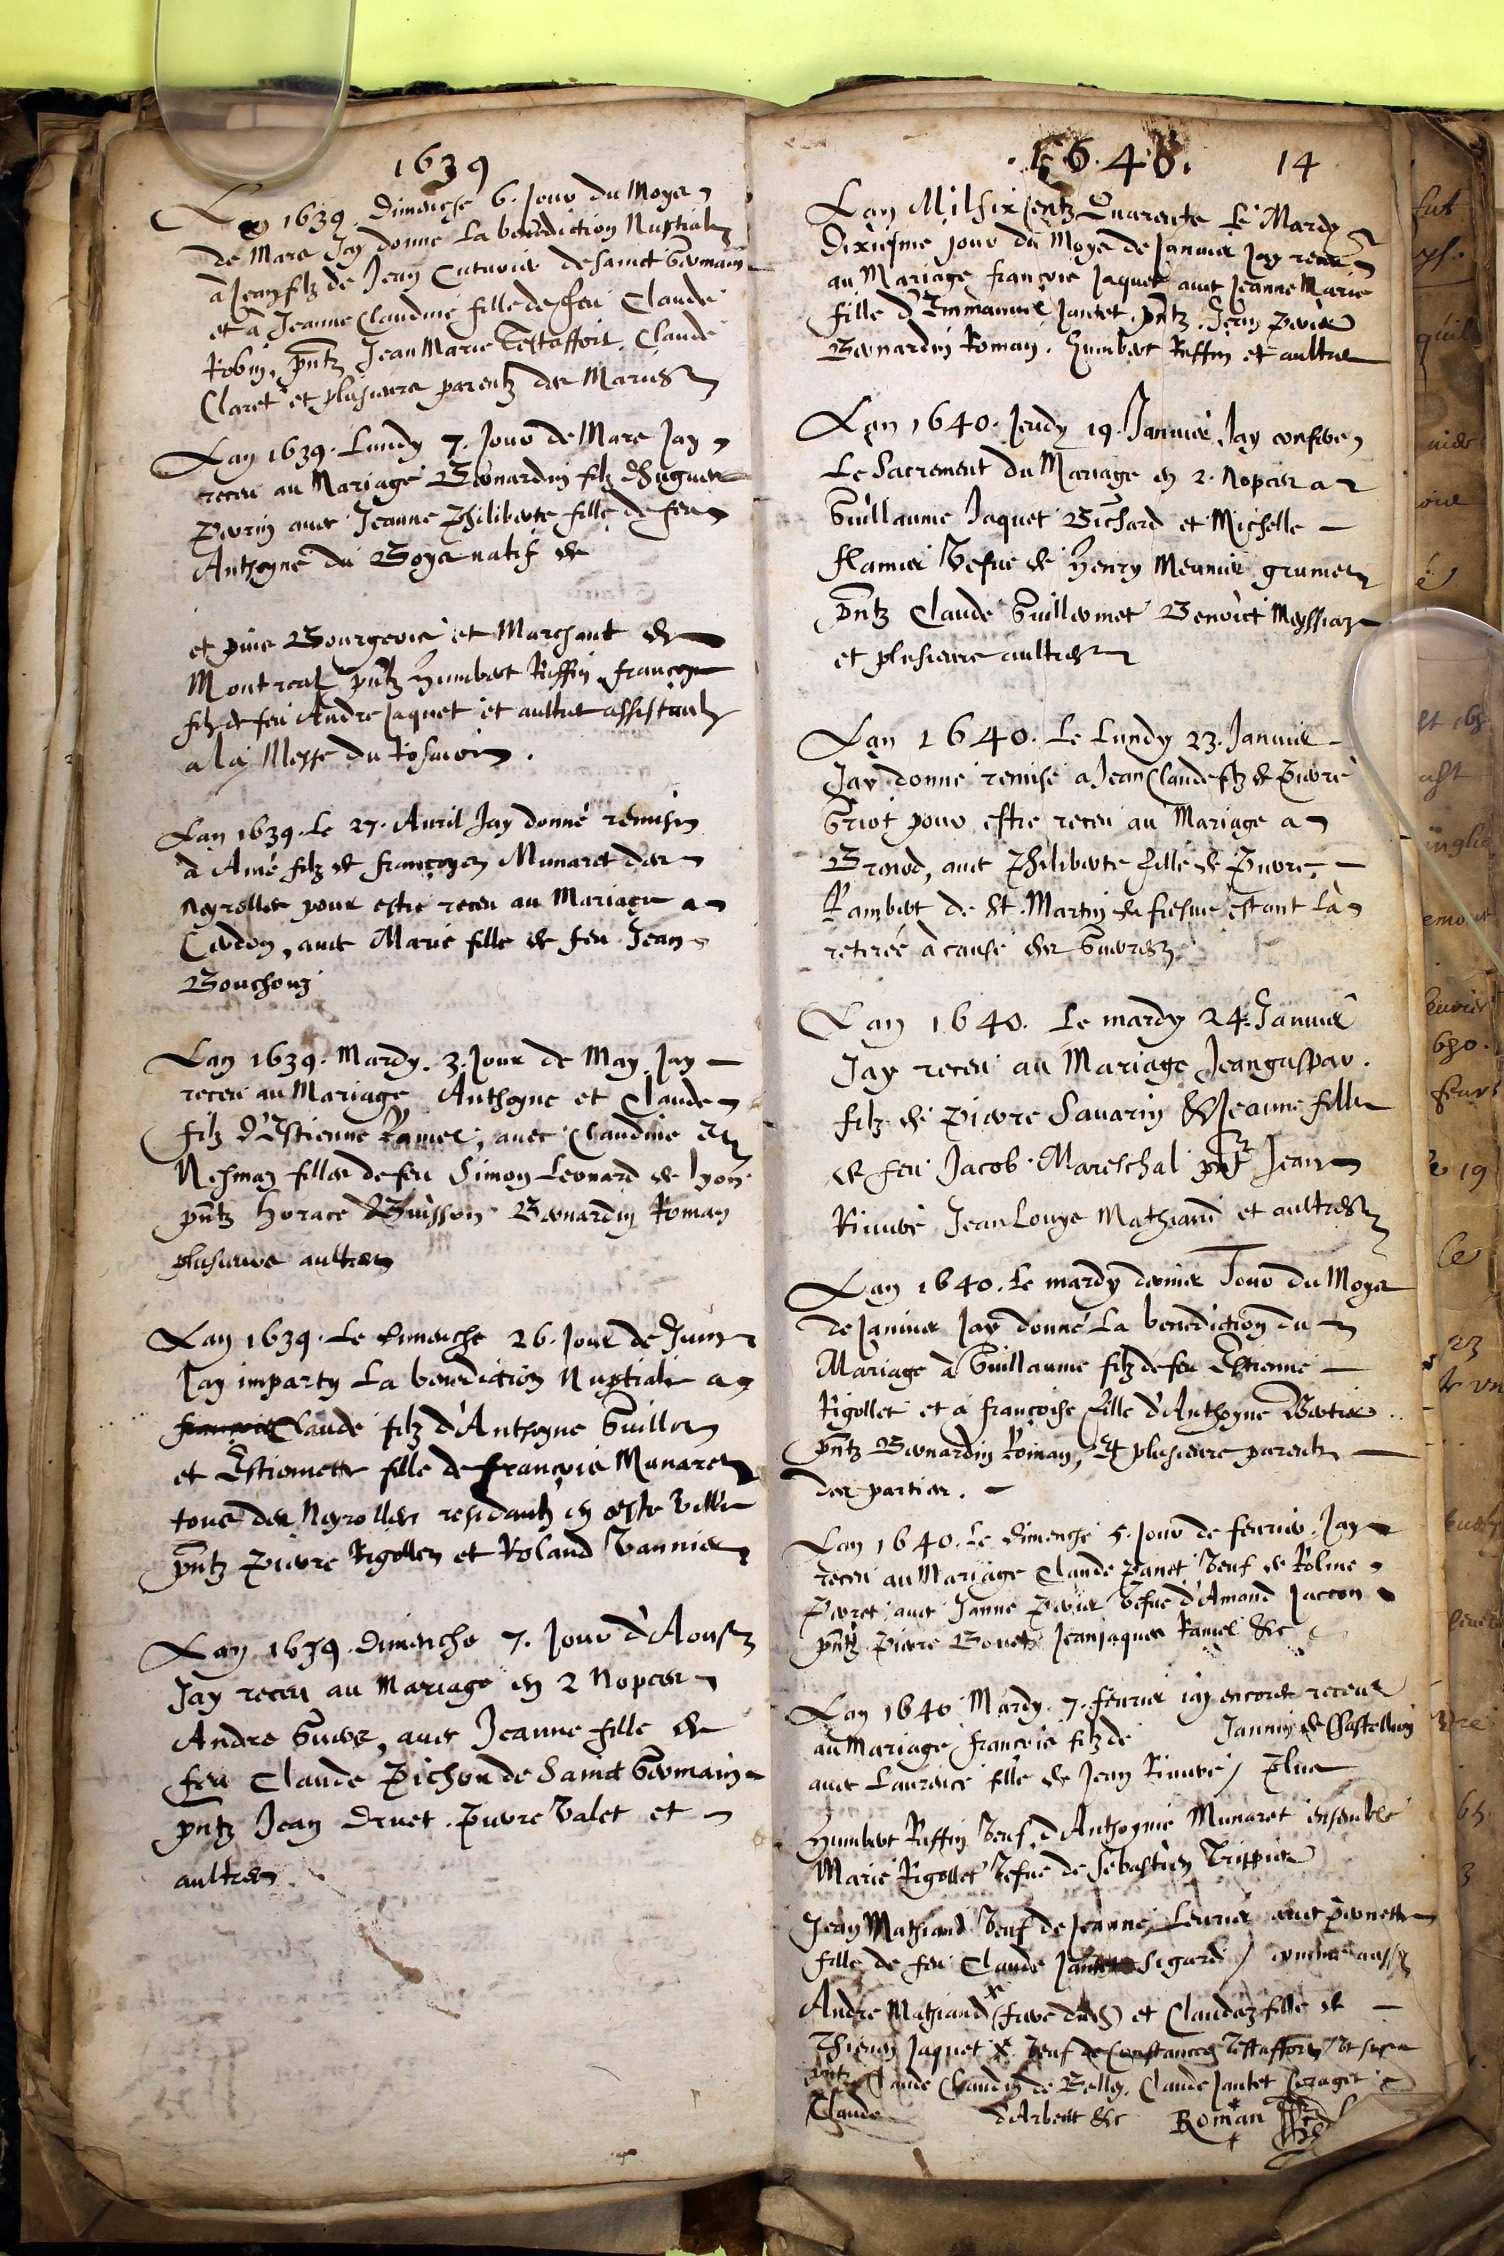 1639
Lan 1639 Dimenche 6. Jour du Moys
de Mars Jay donné La benediction Nuptiale
a Jean filz de Jean Cuturier de Sainct Germain
et à Jeanne Claudine fille de feu Claude
Robin. pntz Jean Marie Testaffort, Claude
Claret et plusieurs parentz des Mariés
Lan 1639. Lundy 7. Jour de Mars Jay
receu au Mariage Bernardin filz d'Hugues
Perrin avec Jeanne Philiberte fille de feu
Anthoyne du Boys natif de
et puis Bourgeois et Marchant de
Montreal pntz Humbert Ruffin, francoys
filz de feu Andre Jaquet et aultres assistantz
a la Messe du Rosaire.
Lan 1639. Le 27. Auril Jay donné remise
à Amé filz de françoys Munaret des
Neyrolles pour estre receu au Mariage a
Cerdon, avec Marie fille de feu Jean
Bouchong
Lan 1639. Mardy. 3. Jour de May. Jay
receu au Mariage Anthoyne et Claude
filz d'Estienne Ramel, avec Claudine et
filles de feu Simon Leonard de Lyon
pntz Horace Buisson Bernardin Roman
plusieurs aultres
Lan 1639. Le dimenche 26. Jour de Juin
Jay imparty La benediction Nuptiale a
Claude filz d'Anthoyne Guillon
et Estiennette fille de françois Munaret
tous des Neyrolles residantz en ceste ville
pntz Pierre Rigollet et Roland Vannier
Lan 1639. Dimenche 7. Jour d'Aoust
Jay receu au Mariage en 2 Nopces
Andre, avec Jeanne fille de
feu Claude Pichon de Sainct Germain
pntz Jean Druet. Pierre Valet et
aultres
.1640. 14
Lan Mil six centz Quarente Le Mardy
Dixiesme jour du Moys de Januier Jay receu
au Mariage françois Jaquet avec Jeanne Marie
fille d'Emmanuel Jantet. pntz. Jean
Bernardin Roman. Humbert Ruffin et aultres
Lan 1640. Jeudy 19. Januier, Jay conferé
Le Sacrement du Mariage en 2. Nopces a
Guillaume Jaquet Bichard et Michelle
flamier Vefue de Henry Meunier grumer
pntz Claude Guillermet Benoict Meyssiaz
et plusieurs aultres
Lan 1640. Le Lundy 23. Januier
Jay donné remise a Jean Claude filz de Pierre
Griot pour estre receu au Mariage a
Brenod, avec Philiberte fille de Pierre
Rambert de St. Martin du fresne estant là
retirée à cause des Guerres
Lan 1640. Le mardy 24. Januier
Jay receu au Mariage Jeangaspar.
filz de Pierre Sauarin & Jeanne fille
de feu Jacob Mareschal pntz Jean
Jean Louys Mathiand et aultres
Lan 1640. Le mardy dernier Jour du Moys
de Januier Jay donné La benediction du
Mariage à Guillaume filz de feu Estienne
Rigollet et à françoise fille d'Anthoyne
pntz Bernardin Roman, Et plusieurs parentz
des parties.
Lan 1640. Le dimenche 5. Jour de feurier. Jay
receu au Mariage Claude Panet Veuf de
Perret, avec Janne Vefue d'Amand Jaccon
pntz Pierre Bouet, Jeanjaques Ramel &c
Lan 1640 Mardy. 7. feurier iay encores receu
au Mariage françois filz de Jannin de Chastellion
avec Laurence fille de Jean / Plus
Humbert Ruffin Veuf d'Anthoynie Munaret ensemble
Marie Rigollet Vefue de Sebastien Trippier
Jean Mathiand Veuf de Jeanne avec Pernette
fille de feu Claude Sigard / comme aussy
Andre Mathiand et Claudaz fille de
Jaquet Veuf de Constance Testaffort
pntz Claude Claudin de Belley, Claude Jantet
Claude d'Arbent &c Roman